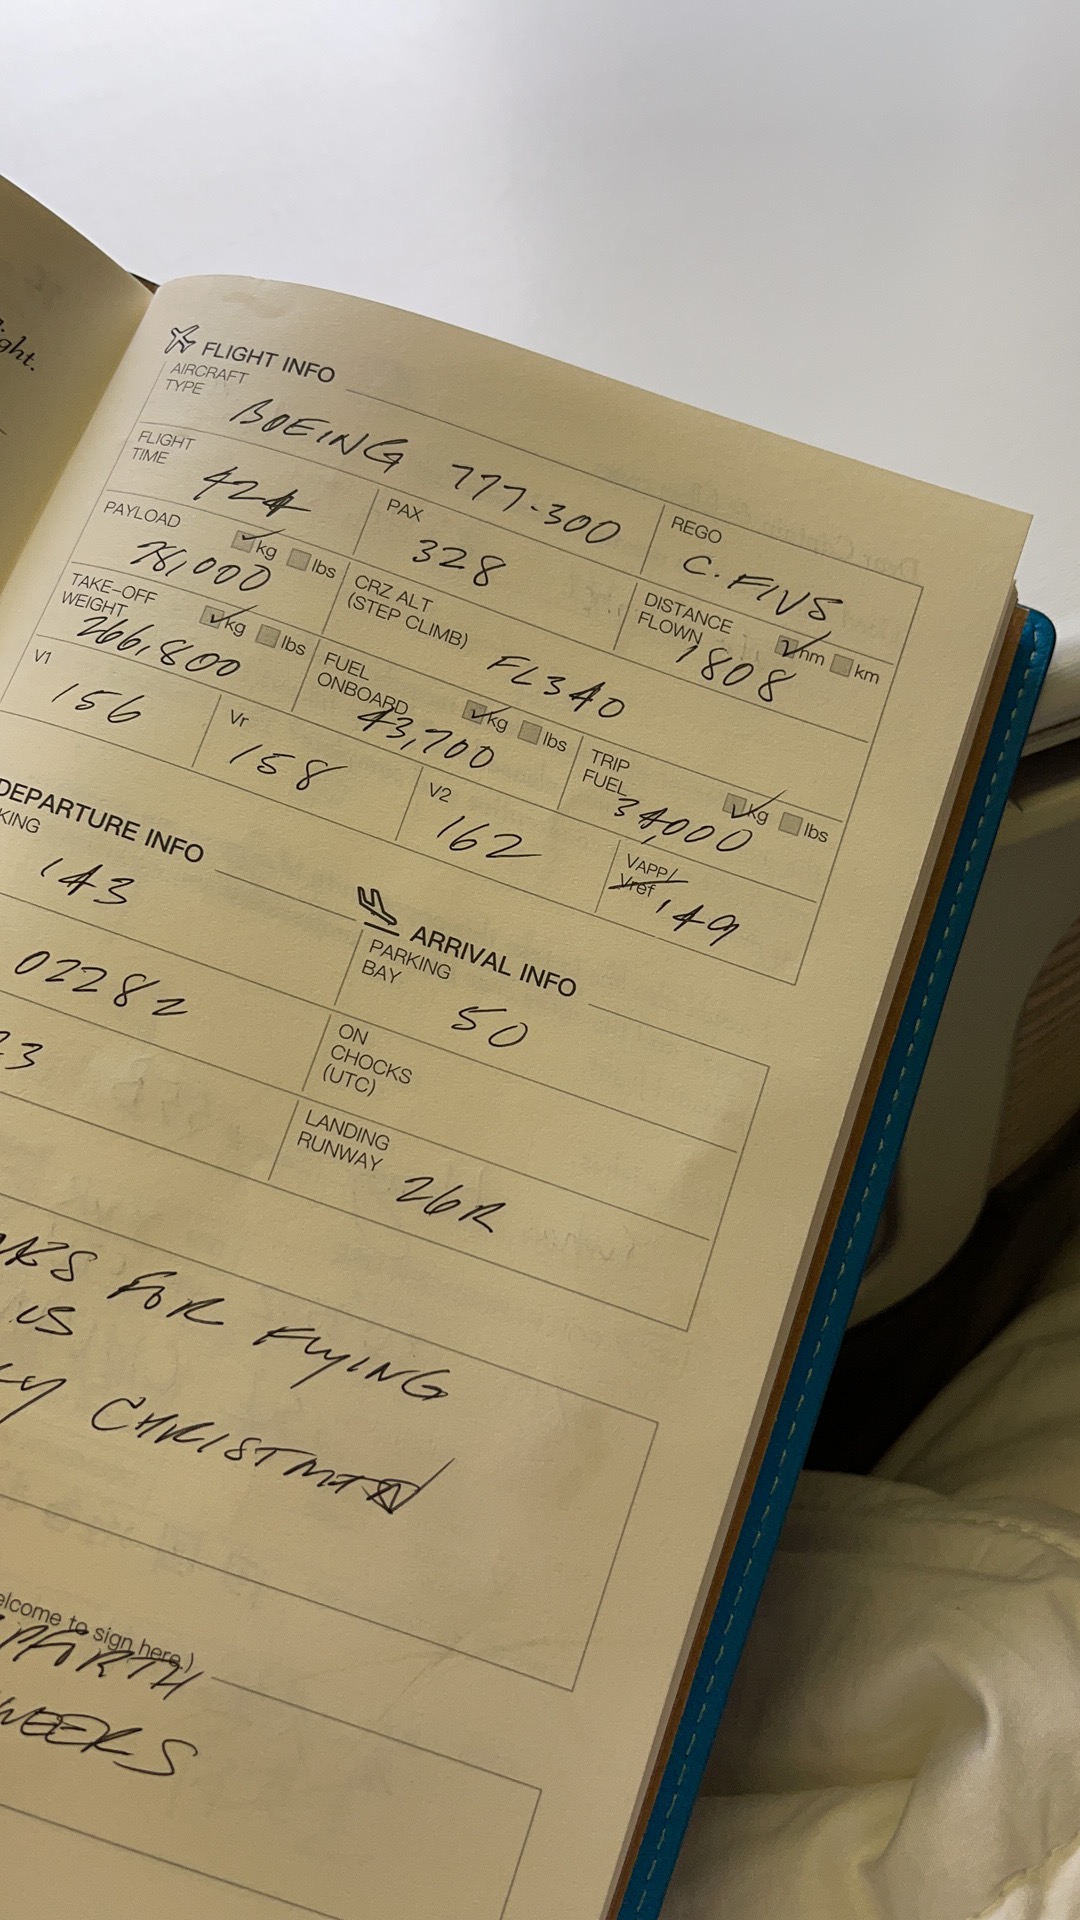 ght.
FLIGHT INFO
AIRCRAFT TYPE
BOEING 777-300
REGO
C.FIVS
FLIGHT TIME
424
PAX
328
DISTANCE FLOWN
nm km
1808
PAYLOAD
kg lbs
78,000
CRZ ALT (STEP CLIMB)
FL340
TAKE-OFF WEIGHT
kg lbs
266,800
FUEL ONBOARD
kg lbs
43,700
TRIP FUEL
kg lbs
34,000
V1
156
Vr
158
V2
162
VAPP/
Vref
149
DEPARTURE INFO
KING
143
02282
3
ARRIVAL INFO
PARKING BAY
50
ON CHOCKS (UTC)
LANDING RUNWAY
26R
FOR FLYING
US
CHRISTMAS
elcome to sign here.)
WEERS